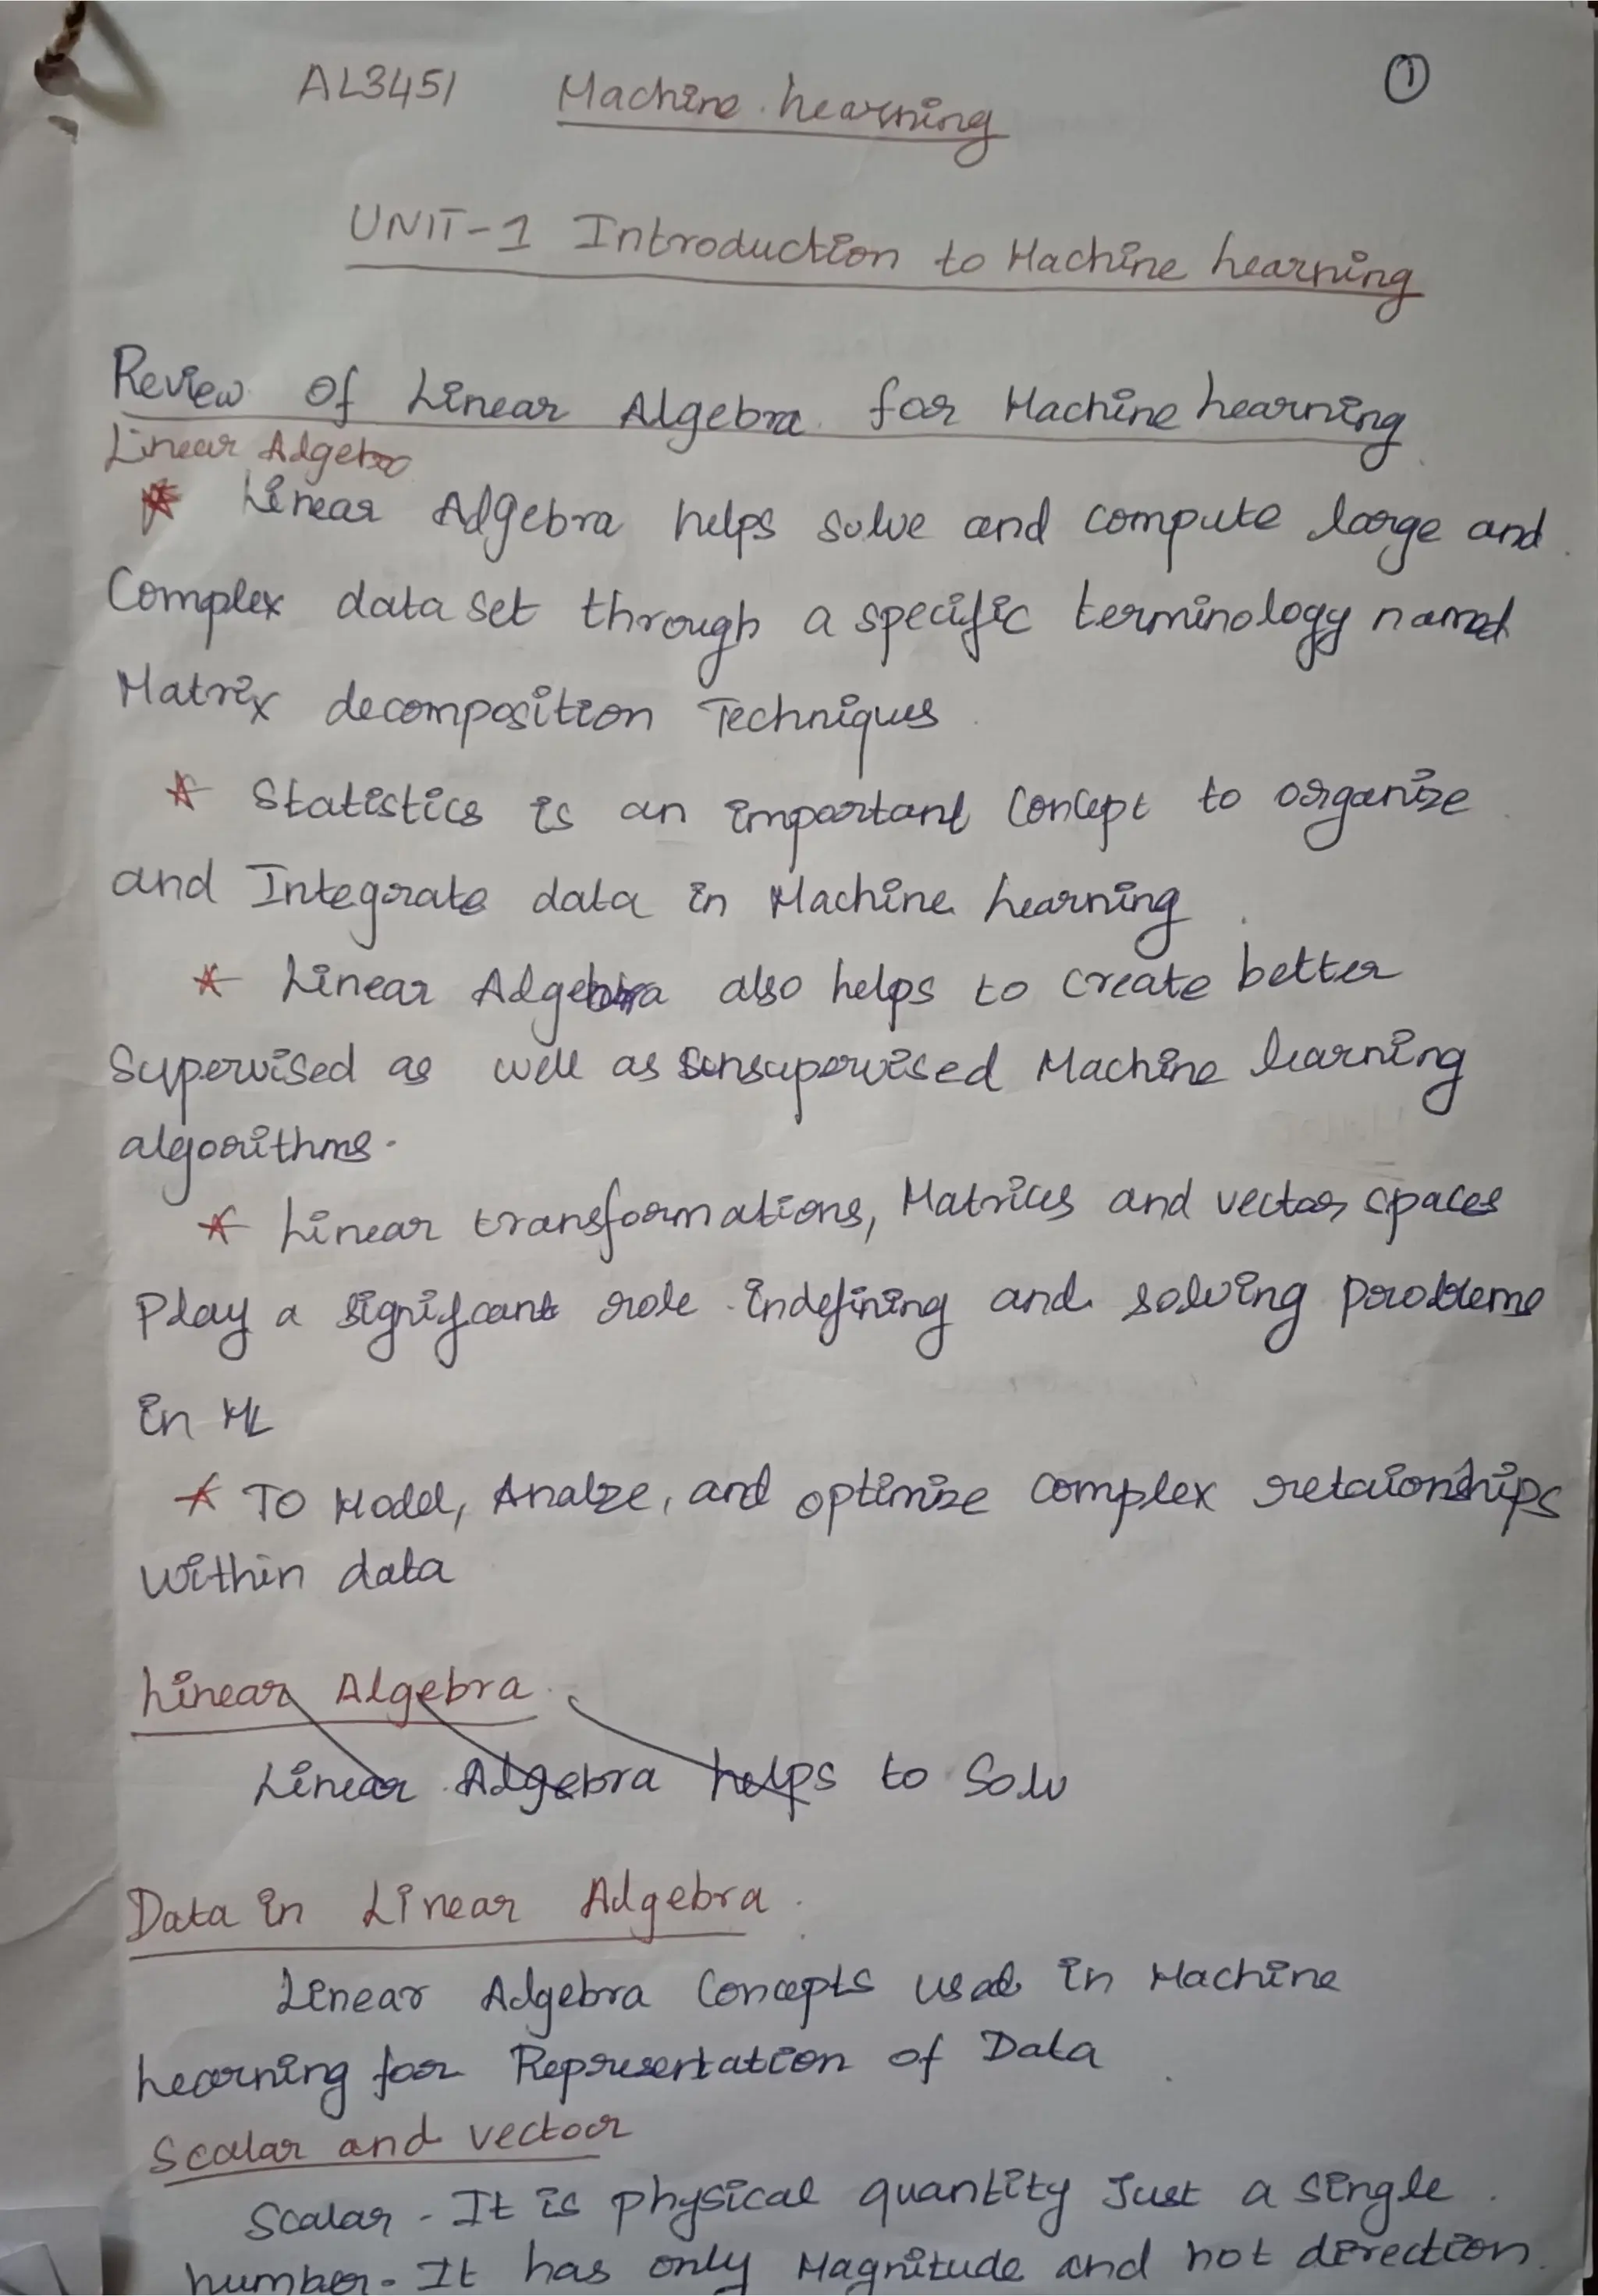 AL3451 Machine Learning ①
UNIT-1 Introduction to Machine Learning
Review Of Linear Algebra for Machine Learning
Linear Algebra
* Linear Algebra helps solve and compute large and
Complex data set through a specific terminology named
Matrix decomposition Techniques
* Statistics is an important Concept to organize
and Integrate data in Machine Learning
* Linear Algebra also helps to Create better
Supervised as well as unsupervised Machine learning
algorithms.
* Linear transformations, Matrices and vector spaces
Play a significant role in defining and solving problems
in ML
* TO Model, Analze, and optimize Complex retaionships
within data
Linear Algebra
Linear Algebra helps to Solv
Data in Linear Algebra
Linear Algebra Concepts used in Machine
Learning for Representation of Data
Scalar and vector
Scalar - It is physical quantity Just a single
number. It has only Magnitude and not direction.